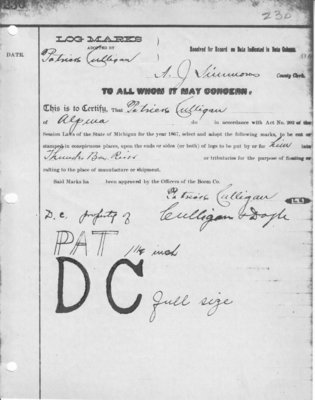 230
LOG MARKS
ADOPTED BY
DATE.
Patrick Culligan
Received for Record on Date Indicated in Date Column.
A. J. Simmons County Clerk.
TO ALL WHOM IT MAY CONCERN:
This is to Certify, That Patrick Culligan
of Alpena do in accordance with Act No. 202 of the
Session Laws of the State of Michigan for the year 1867, select and adopt the following marks, to be cut or
stamped in conspicuous places, upon the ends or sides (or both) of logs to be put by or for him into
Thunder Bay River or tributaries for the purpose of floating or
rafting to the place of manufacture or shipment.
Said Marks ha been approved by the Officers of the Boom Co.
Patrick Culligan
D. C. property of Culligan & Doyle
PAT
inch
DC full size